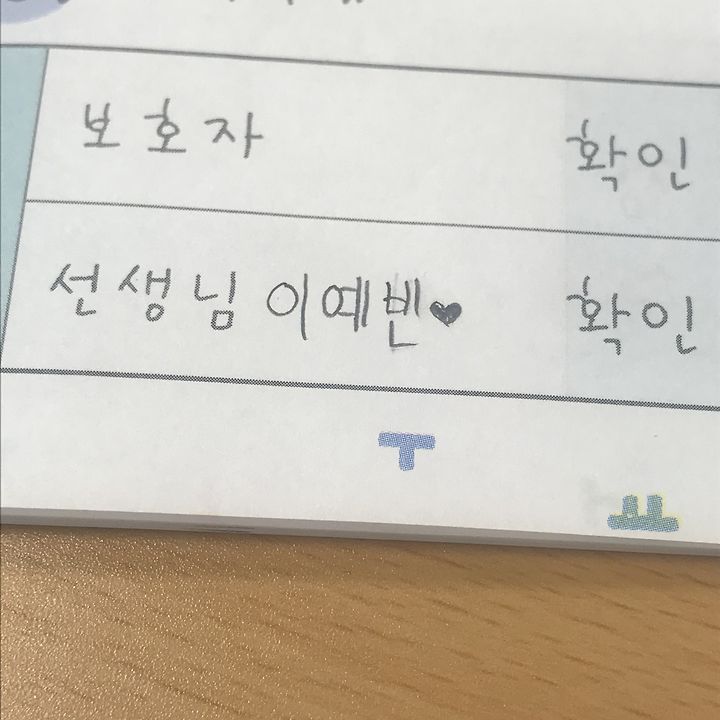 보호자 확인
선생님 이예빈♥ 확인
ㅜ
ㅛ